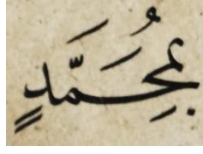 بِمُحَمَّدٍ